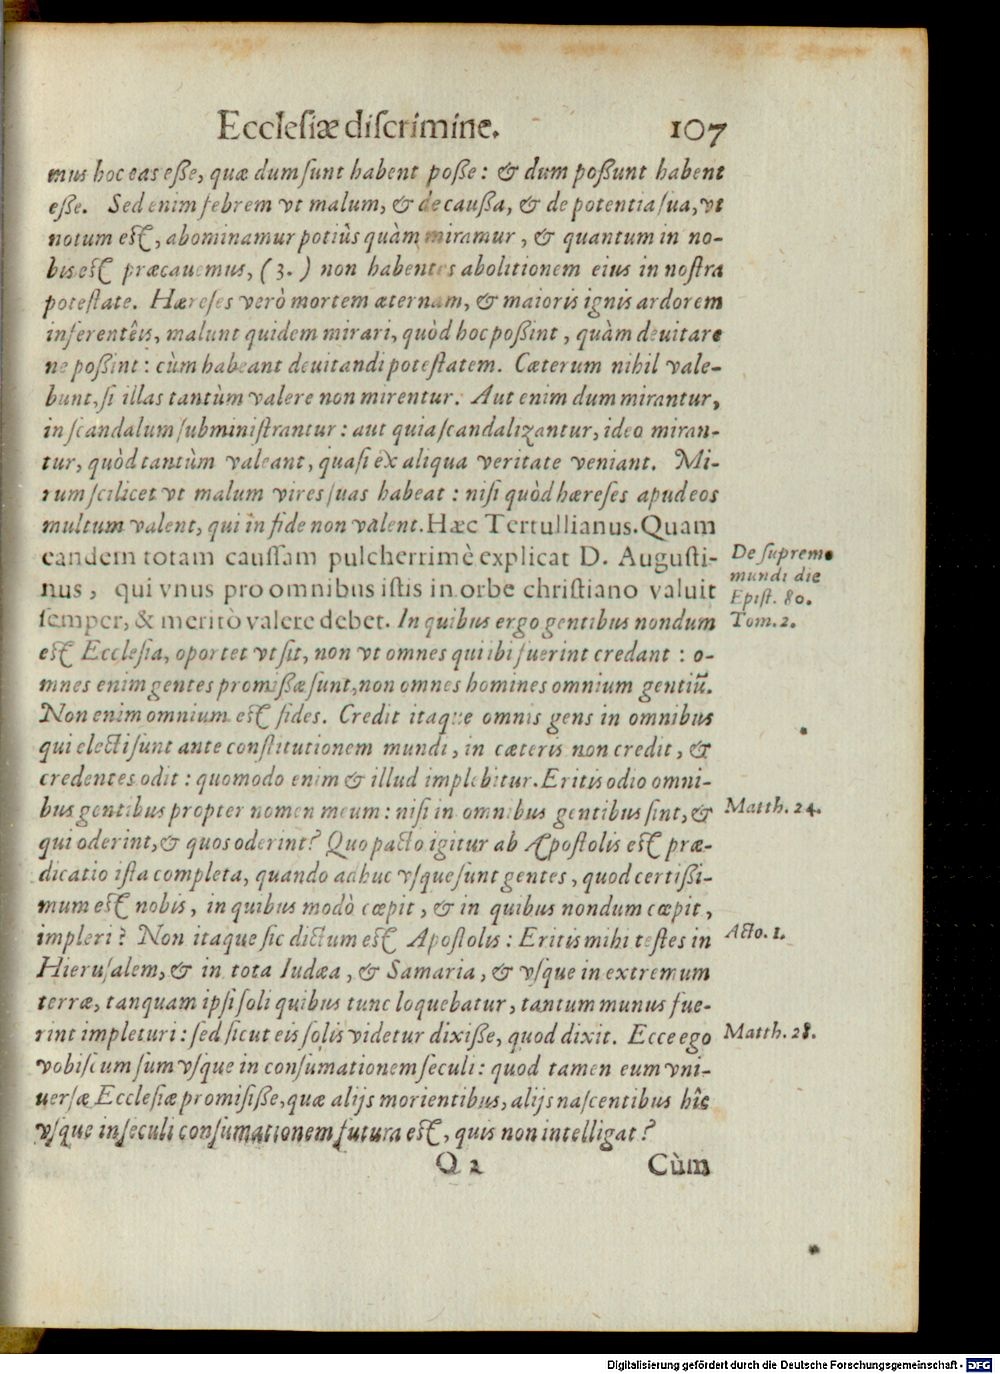 Ecclesiæ discrimine. 107
mus hoc eas eße, quæ dum sunt habent poße: & dum poßunt habent
eße. Sed enim febrem vt malum, & de caußa, & de potentia sua, vt
notum est, abominamur potiùs quàm miramur, & quantum in no-
bis est præcauemus, (3.) non habentes abolitionem eius in nostra
potestate. Hæreses verò mortem æternam, & maioris ignis ardorem
inferentêis, malunt quidem mirari, quòd hoc poßint, quàm deuitare
ne poßint: cùm habeant deuitandi potestatem. Cæterum nihil vale-
bunt, si illas tantùm valere non mirentur. Aut enim dum mirantur,
in scandalum subministrantur: aut quia scandalizantur, ideo miran-
tur, quòd tantùm valeant, quasi ex aliqua veritate veniant. Mi-
rum scilicet vt malum vires suas habeat: nisi quòd hæreses apud eos
multum valent, qui in fide non valent. Hæc Tertullianus. Quam
eandem totam caussam pulcherrimè explicat D. Augusti-
nus, qui vnus pro omnibus istis in orbe christiano valuit
semper, & meritò valere debet. In quibus ergo gentibus nondum
est Ecclesia, oportet vt sit, non vt omnes qui ibi fuerint credant: o-
mnes enim gentes promißæ sunt, non omnes homines omnium gentiū.
Non enim omnium est fides. Credit itaque omnis gens in omnibus
qui electi sunt ante constitutionem mundi, in cæteris non credit, &
credentes odit: quomodo enim & illud implebitur. Eritis odio omni-
bus gentibus propter nomen meum: nisi in omnibus gentibus sint, &
qui oderint, & quos oderint? Quo pacto igitur ab Apostolis est præ-
dicatio ista completa, quando adhuc vsque sunt gentes, quod certißi-
mum est nobis, in quibus modò cœpit, & in quibus nondum cœpit,
impleri? Non itaque sic dictum est Apostolis: Eritis mihi testes in
Hierusalem, & in tota Iudæa, & Samaria, & vsque in extremum
terræ, tanquam ipsi soli quibus tunc loquebatur, tantum munus fue-
rint impleturi: sed sicut eis solis videtur dixiße, quod dixit. Ecce ego
vobiscum sum vsque in consumationem seculi: quod tamen eum vni-
uersæ Ecclesiæ promisiße, quæ alijs morientibus, alijs nascentibus hîc
vsque in seculi consumationem futura est, quis non intelligat?
Q 2 Cùm
De supremo
mundi die
Epist. 80.
Tom. 2.
Matth. 24.
Acto. 1.
Matth. 28.
Digitalisierung gefördert durch die Deutsche Forschungsgemeinschaft - DFG